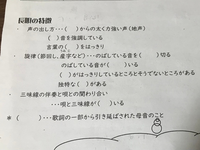 長唄の特徴
・声の出し方・・・(　　)からの太く力強い声(地声)
(　　)音を強調している
言葉の(　　)をはっきり
・旋律(節回し,産字など)・・・のばしている音を(　　)切る
のばしている音が(　　)いる
(　　)がはっきりしているところとそうでないところがある
独特な(　　)がある
・三味線の伴奏と唄との関わり合い
・・・唄と三味線が(　　)いる
※(　　)・・・歌詞の一部から引き延ばされた母音のこと